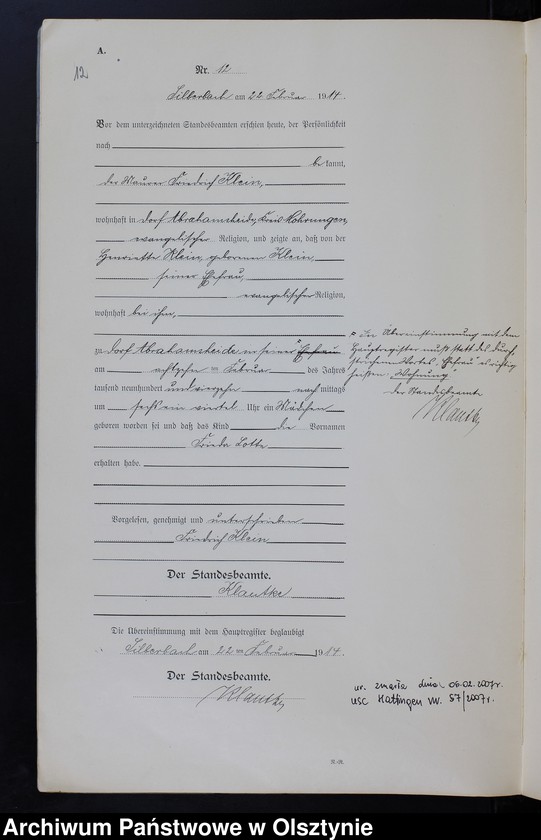 A.
12
Nr. 12
Silberbach am 22 Februar 1914.
Vor dem unterzeichneten Standesbeamten erschien heute, der Persönlichkeit
nach
bekannt,
der Maurer Friedrich Klein,
wohnhaft in Dorf Abrahamsheide, Kreis Mohrungen,
evangelischer Religion, und zeigte an, daß von der
Henriette Klein, geborenen Klein,
seiner Ehefrau,
evangelischer Religion,
wohnhaft bei ihm,
zu Dorf Abrahamsheide in seiner Ehefrau
am achtzehnten Februar des Jahres
tausend neunhundert und vierzehn nachmittags
um sechs ein viertel Uhr ein Mädchen
geboren worden sei und daß das Kind die Vornamen
Frieda Lotte
erhalten habe.
Vorgelesen, genehmigt und unterschrieben
Friedrich Klein
Der Standesbeamte.
Klautke
Die Übereinstimmung mit dem Hauptregister beglaubigt
Silberbach am 22ten Februar 1914.
Der Standesbeamte.
Klautke
In Übereinstimmung mit dem
Hauptregister muß statt des durch-
strichenen Wortes „Ehefrau" es richtig
heißen „Wohnung"
der Standesbeamte
Klautke
ur. zmarła dnia 06.02.2007r.
USC Hattingen nr. 57/2007r.
Archiwum Państwowe w Olsztynie